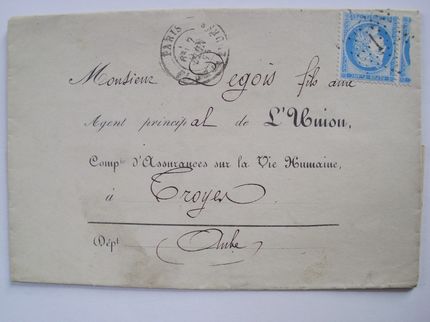 PARIS
Monsieur Legois fils aîné
Agent principal de L'Union,
Comp^e d'Assurances sur la Vie Humaine,
à Troyes
Dép^t Aube